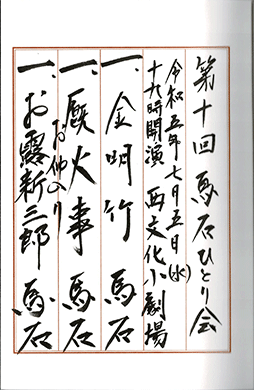 第十回 馬石ひとり会
令和五年七月五日(水)
十九時開演 西文化小劇場
一、金明竹 馬石
一、厩火事 馬石
お仲入り
一、お露新三郎 馬石